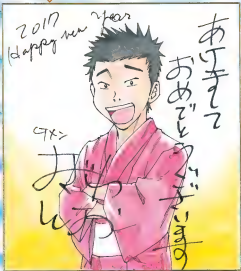 2017
Happy new Year
あけまして
おめでとうございます
イケメン